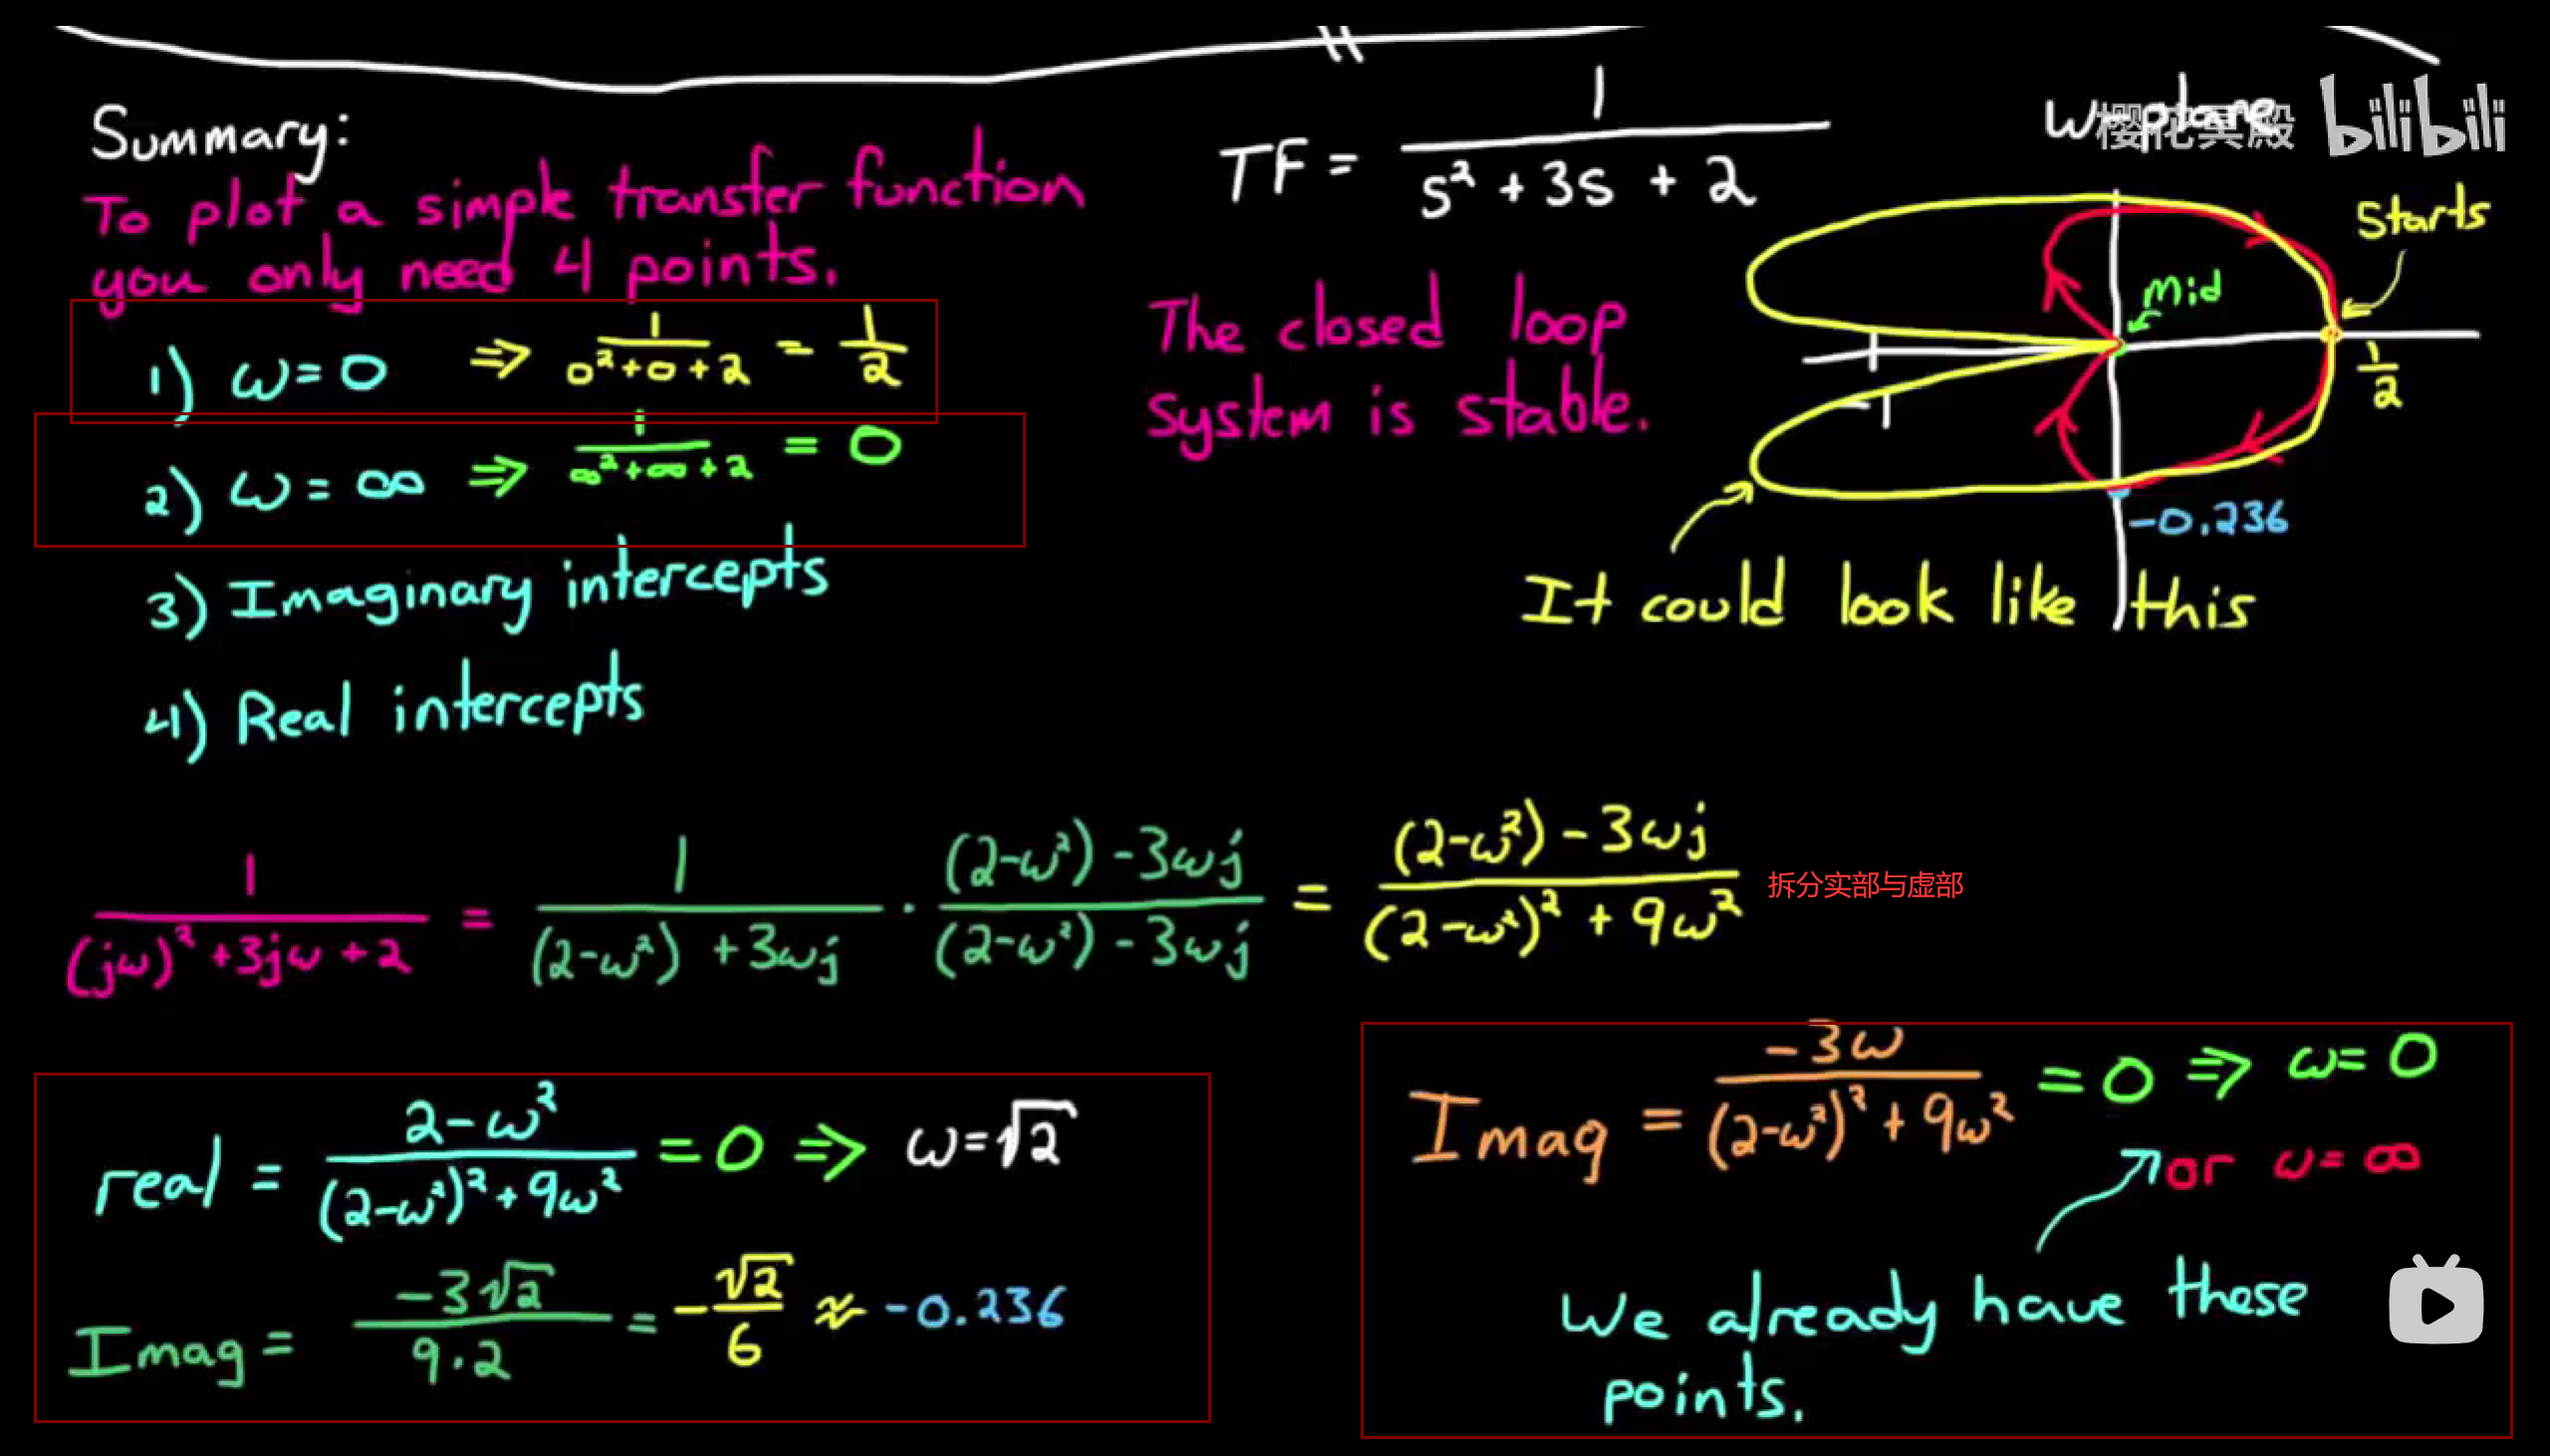 Summary:
To plot a simple transfer function
you only need 4 points.
1) ω = 0 ⇒ 1/(0²+0+2) = 1/2
2) ω = ∞ ⇒ 1/(∞²+∞+2) = 0
3) Imaginary intercepts
4) Real intercepts
TF = 1/(s² + 3s + 2)
The closed loop
system is stable.
w-plane
bilibili
Starts
Mid
1/2
-1
-0.236
It could look like this
1/((jω)²+3jω+2) = 1/((2-ω²)+3ωj) · ((2-ω²)-3ωj)/((2-ω²)-3ωj) = ((2-ω²)-3ωj)/((2-ω²)²+9ω²)
拆分实部与虚部
real = (2-ω²)/((2-ω²)²+9ω²) = 0 ⇒ ω=√2
Imag = -3√2/(9·2) = -√2/6 ≈ -0.236
Imag = -3ω/((2-ω²)²+9ω²) = 0 ⇒ ω= 0
or ω= ∞
We already have these
points.